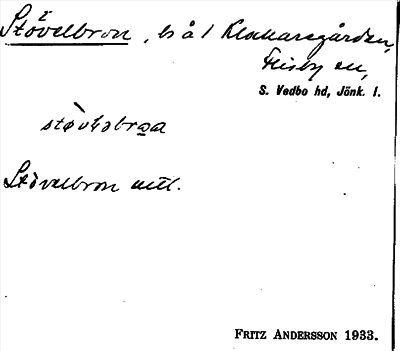 Stövelbron, bs å 1 Klockaregården,
Flisby sn,
S. Vedbo hd, Jönk. l.
støvəlbrωɑ
Stövelbron uttl.
FRITZ ANDERSSON 1933.